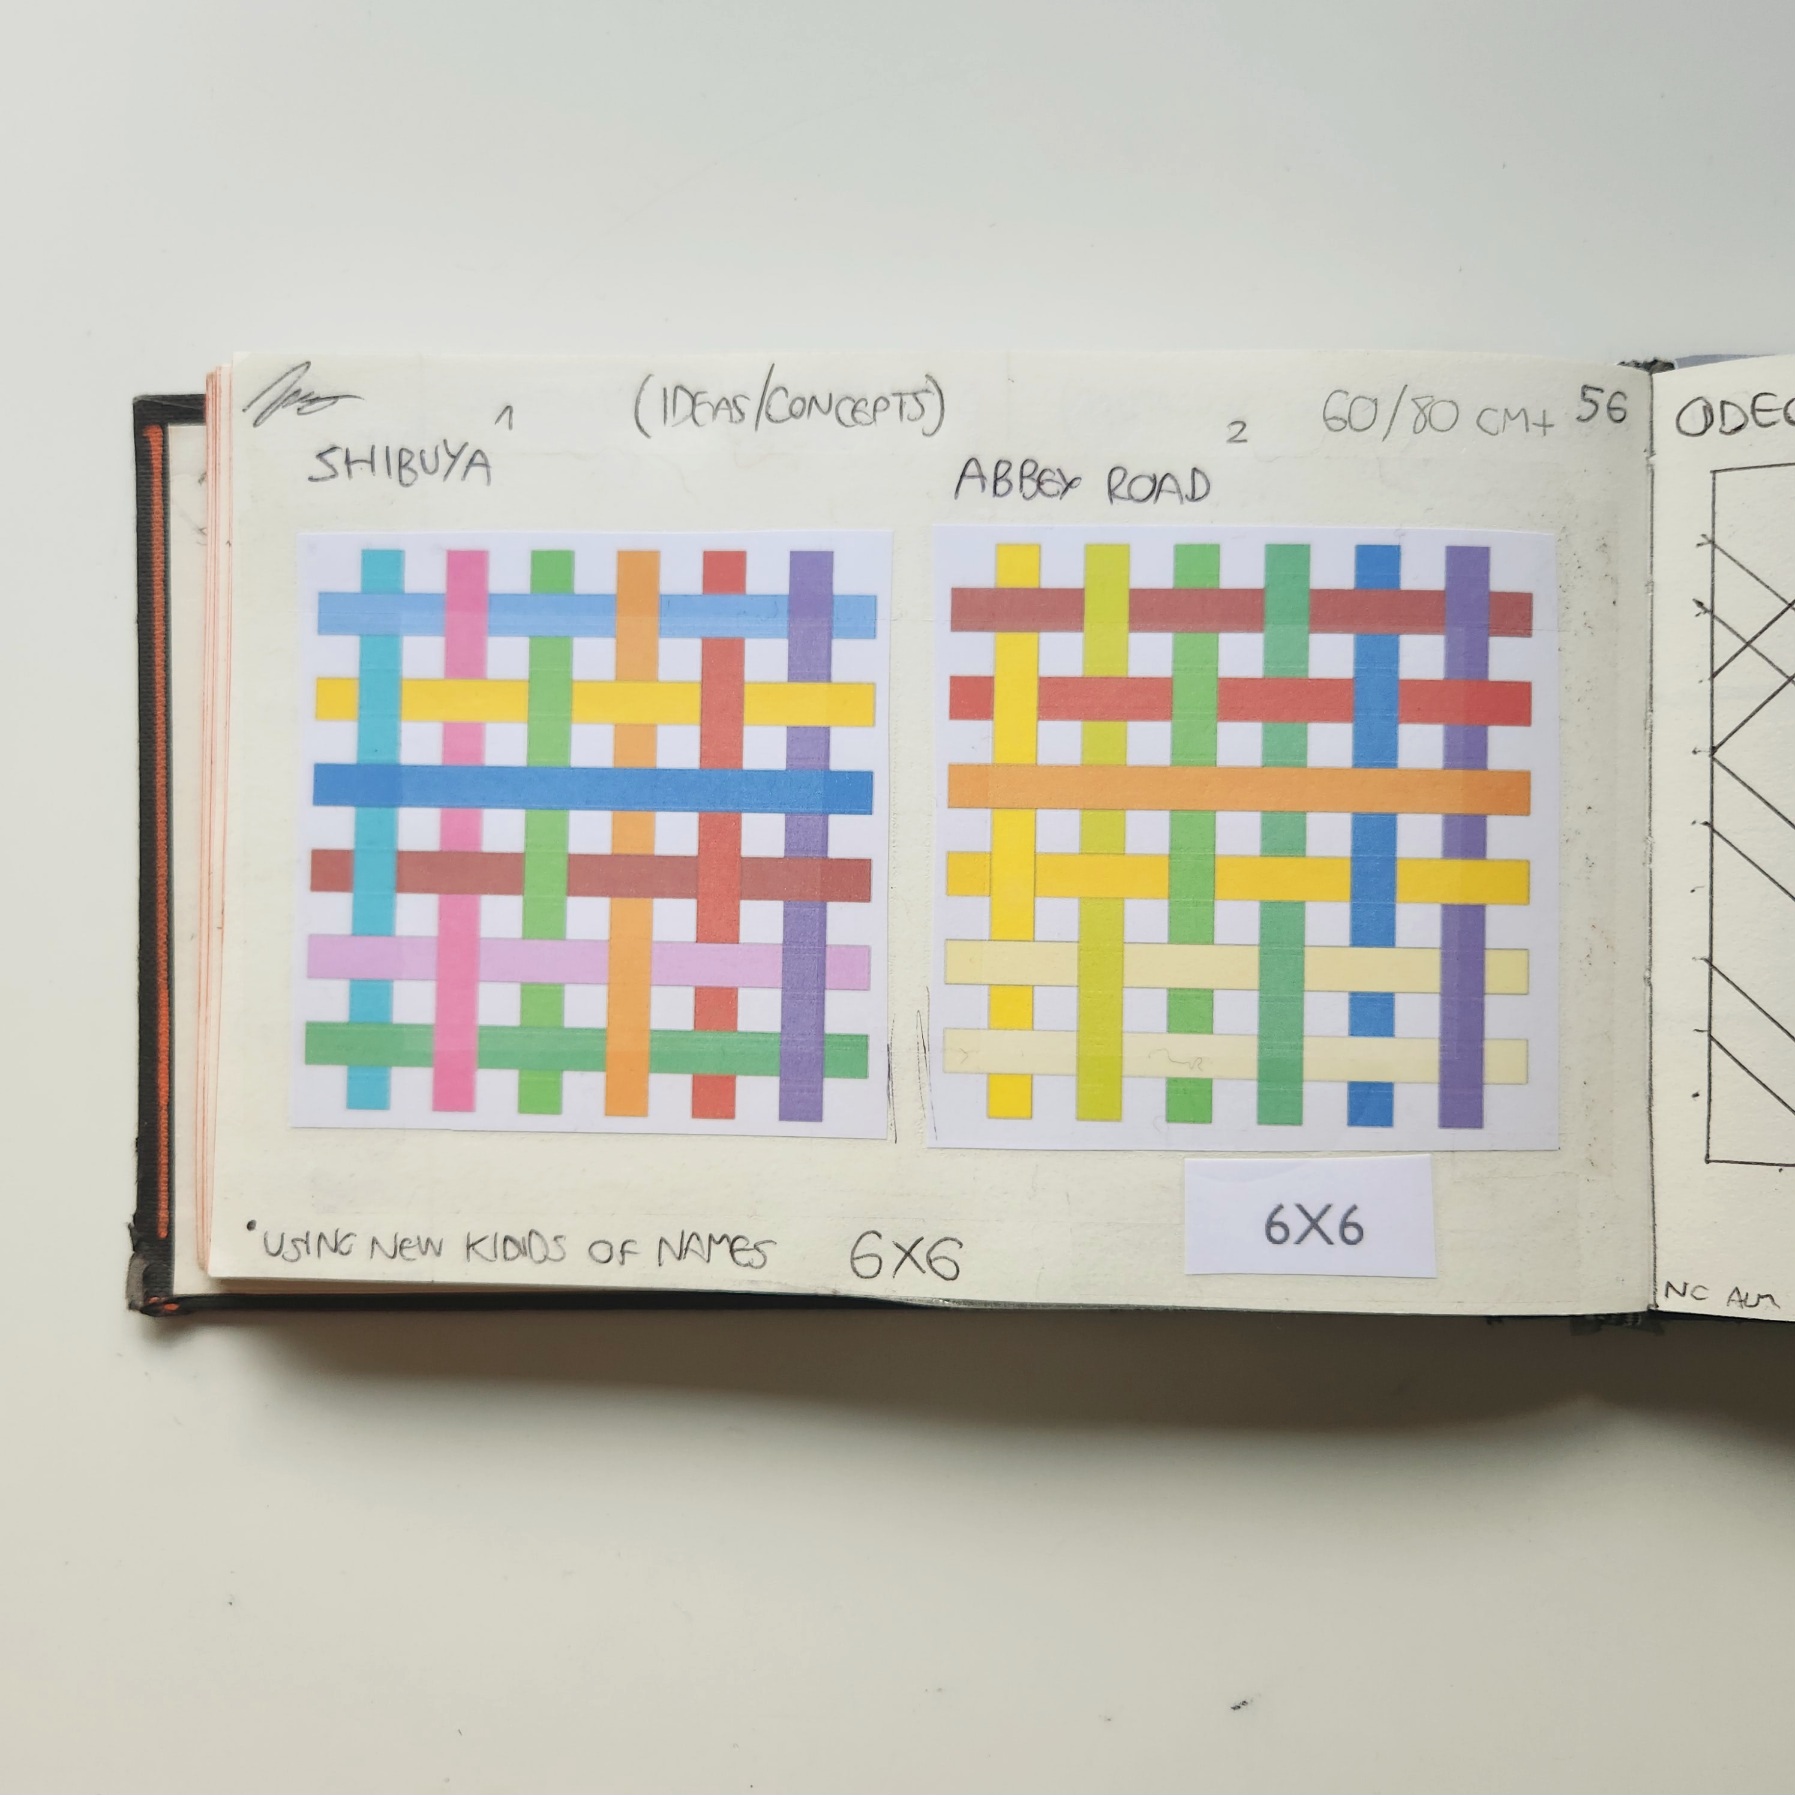 (IDEAS/CONCEPTS)
60/80 CM+
56
1
SHIBUYA
2
ABBEY ROAD
6X6
•USING NEW KIDIDS OF NAMES
6X6
ODEC
NC